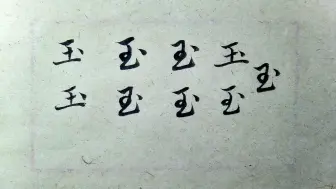 玉 玉 玉 玉
玉
玉 玉 玉 玉